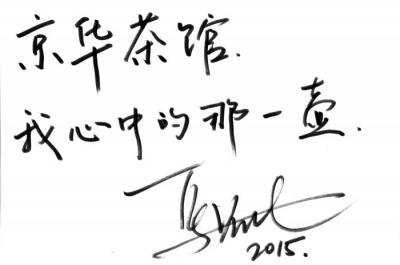 京华茶馆.
我心中的那一壶.
2015.